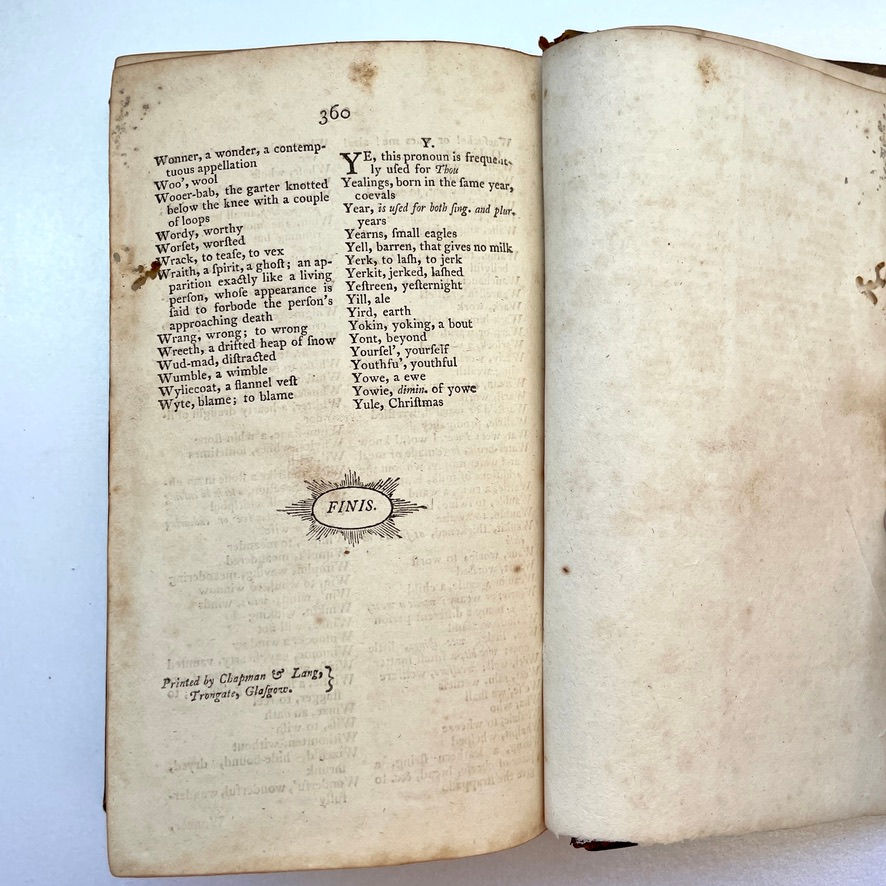 360
Wonner, a wonder, a contemp-
tuous appellation
Woo', wool
Wooer-bab, the garter knotted
below the knee with a couple
of loops
Wordy, worthy
Worſet, worſted
Wrack, to teaſe, to vex
Wraith, a ſpirit, a ghoſt; an ap-
parition exactly like a living
perſon, whoſe appearance is
ſaid to forbode the perſon's
approaching death
Wrang, wrong; to wrong
Wreeth, a drifted heap of ſnow
Wud-mad, diſtracted
Wumble, a wimble
Wyliecoat, a flannel veſt
Wyte, blame; to blame
Y.
YE, this pronoun is frequent-
ly uſed for Thou
Yealings, born in the ſame year,
coevals
Year, is uſed for both ſing. and plur.
years
Yearns, ſmall eagles
Yell, barren, that gives no milk
Yerk, to laſh, to jerk
Yerkit, jerked, laſhed
Yeſtreen, yeſternight
Yill, ale
Yird, earth
Yokin, yoking, a bout
Yont, beyond
Yourſel', yourſelf
Youthfu', youthful
Yowe, a ewe
Yowie, dimin. of yowe
Yule, Chriſtmas
FINIS.
Printed by Chapman & Lang,
Trongate, Glaſgow.